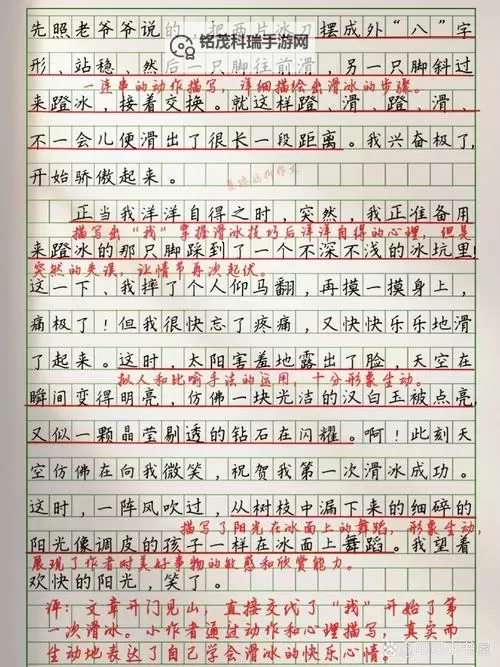 先照老爷爷说的，把两片冰刀摆成外“八”字
铭茂科瑞手游网
形、站稳、然后一只脚往前滑，另一只脚斜过
一连串的动作描写，详细描绘出滑冰的步骤。
来蹬冰，接着交换。就这样蹬、滑、蹬、滑、
不一会儿便滑出了很长一段距离。我兴奋极了，
开始骄傲起来。
正当我洋洋自得之时，突然，我正准备用
描写出“我”掌握滑冰技巧后洋洋自得的心理，但是
来蹬冰的那只脚踩到了一个不深不浅的冰坑里！
突然的失误，让情节再次起伏。
这一下、我摔了个人仰马翻，再摸一摸身上，
痛极了！但我很快忘了疼痛，又快快乐乐地滑
了起来。这时，太阳害羞地露出了脸，天空在
拟人和比喻手法的运用，十分形象生动。
瞬间变得明亮，仿佛一块光洁的汉白玉被点亮，
又似一颗晶莹剔透的钻石在闪耀。啊！此刻天
空仿佛在向我微笑，祝贺我第一次滑冰成功。
这时，一阵风吹过，从树枝中漏下来的细碎的
描写了阳光在冰面上的舞蹈，形象生动，
阳光像调皮的孩子一样在冰面上舞蹈。我望着
展现了作者对美好事物的敏感和欣赏能力。
欢快的阳光，笑了。
评：文章开门见山，直接交代了“我”开始了第
一次滑冰。小作者通过动作和心理描写，真实而
生动地表达了自己学会滑冰的快乐心情。